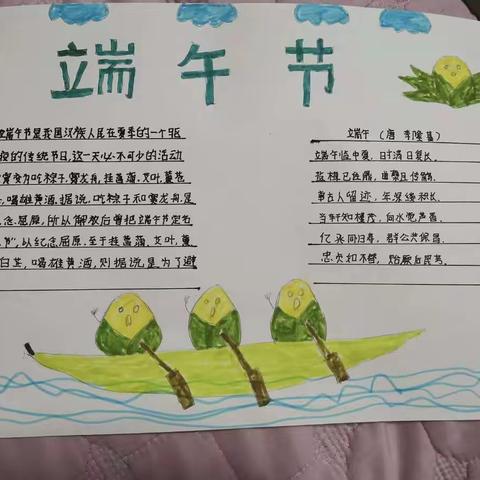 端午节
端午节是我国汉族人民在夏季的一个驱
疫的传统节日,这一天必不可少的活动
演变为吃粽子,赛龙舟,挂菖蒲、艾叶,薰苍
喝雄黄酒,据说,吃粽子和赛龙舟,是
念屈原,所以解放后曾把端午节定名
节",以纪念屈原,至于挂菖蒲、艾叶,薰
白芷,喝雄黄酒,则据说是为了避
端午 (唐 李隆基)
端午临中夏,时清日复长。
盐梅已佐鼎,曲糵且传觞。
事古人留迹,年深缕积长。
当轩知槿茂,向水觉芦香。
亿兆同归寿,群公共保昌。
忠 不替,贻厥后昆芳。